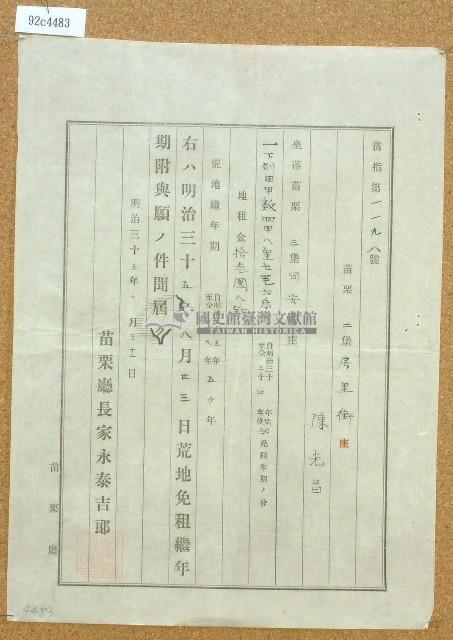 92c4483
苗指第一一九八號
苗栗二堡房里街庄
陳光昌
坐落苗栗三堡同安庄
一下則田甲數四甲八厘七毛六糸
自明治三十年
至仝三十年
免租年期ノ分
地租金拾叁圓八
荒地繼年期
自明治三年
至仝年
五ヶ年
右ハ明治三十五年八月廿三日荒地免租繼年
期附與願ノ件聞屆ク
明治三十五年十月三十一日
苗栗廳長家永泰吉郎
苗栗廳
國史館臺灣文獻館
TAIWAN HISTORICA
4483